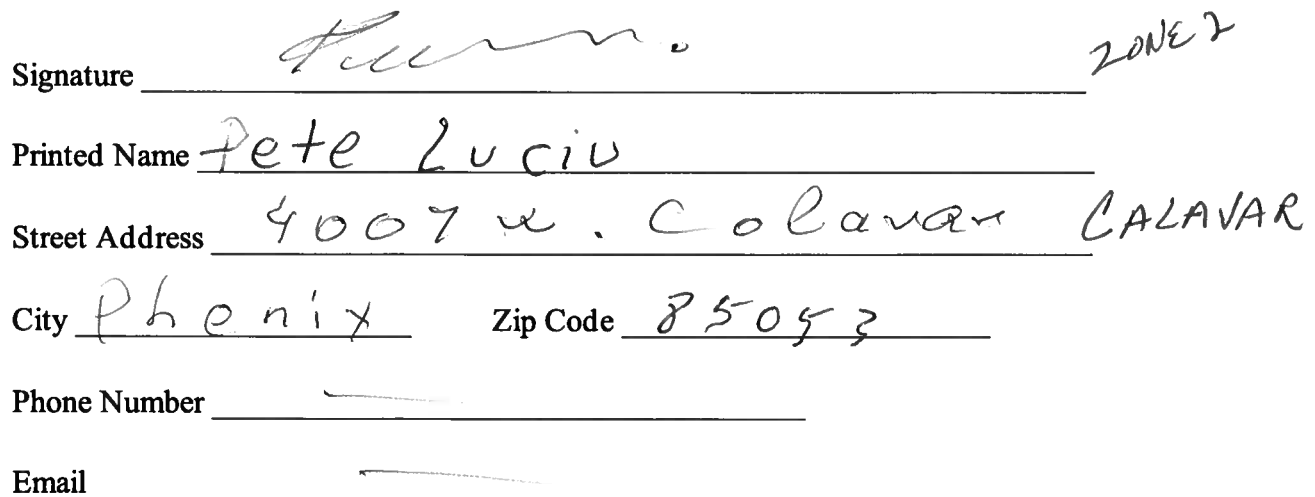 Signature ZONE 2
Printed Name Pete Luciu
Street Address 4007 w. Colavar CALAVAR
City Phenix Zip Code 85053
Phone Number
Email